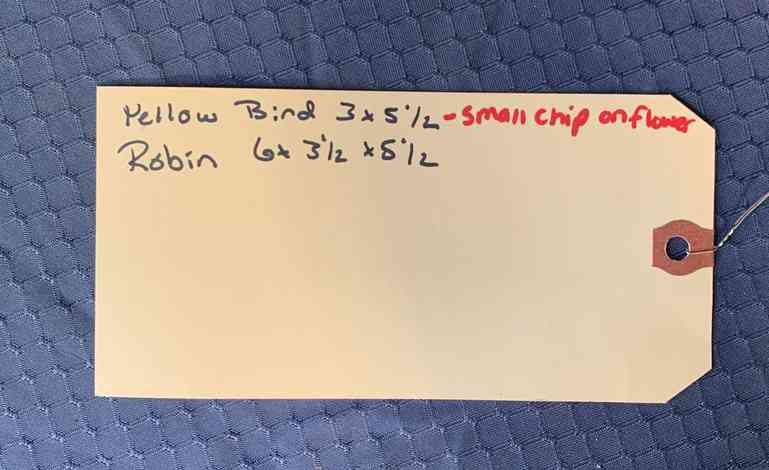 Yellow Bird 3x5 1/2 - small chip on flower
Robin 6x 3 1/2 x 5 1/2